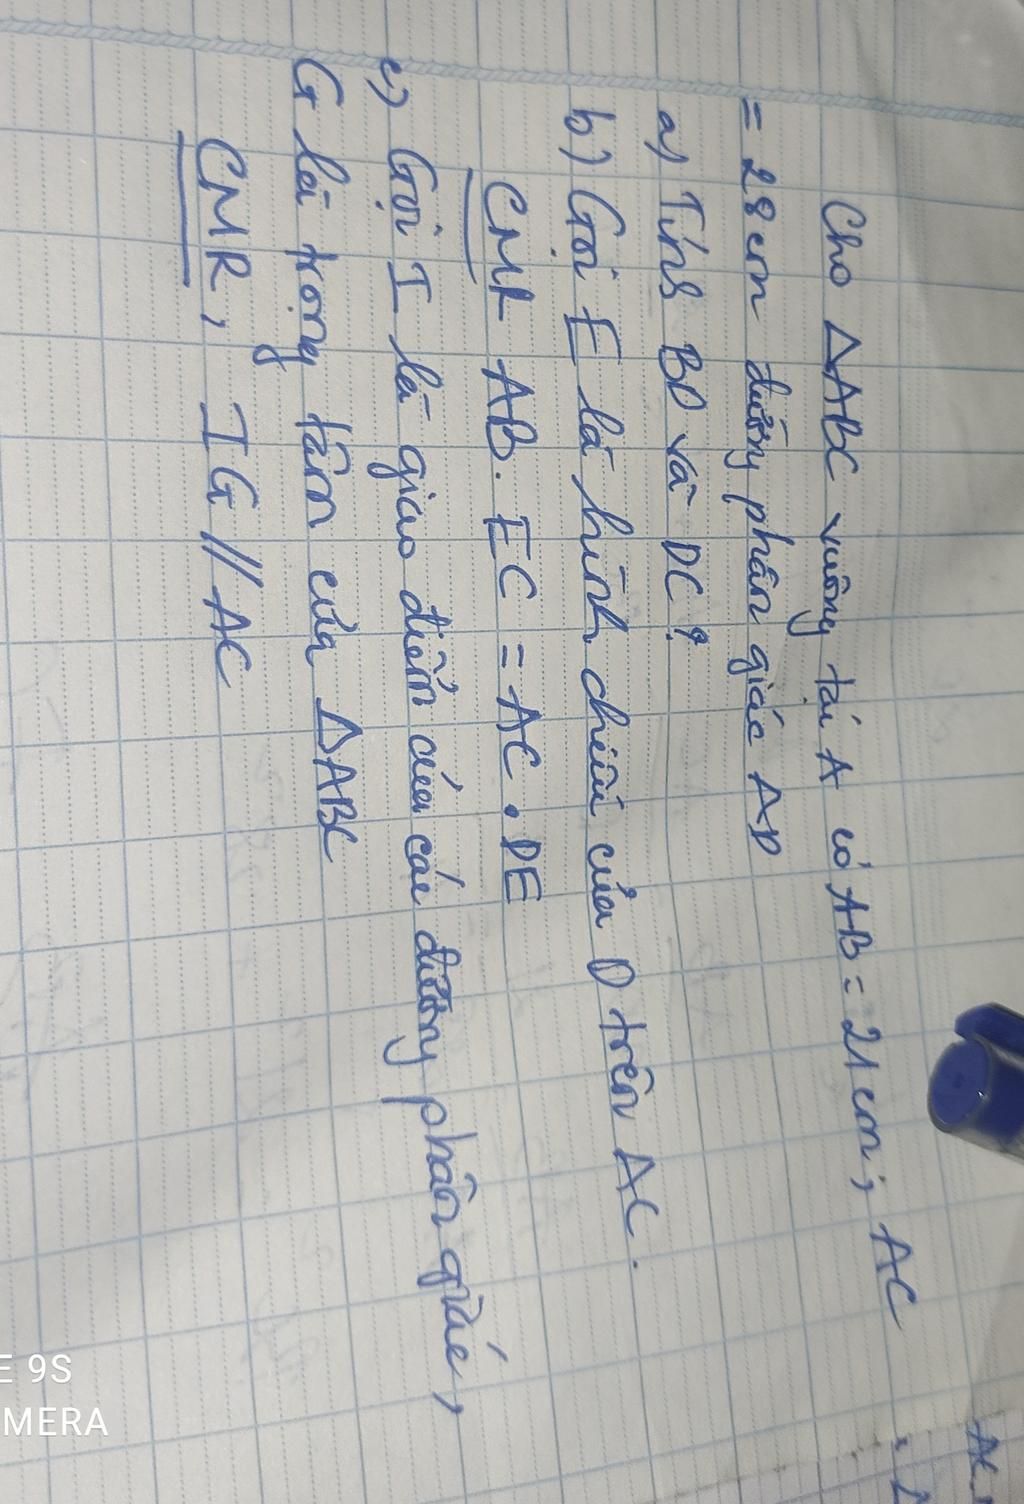 Cho ΔABC vuông tại A có AB = 21 cm; AC
= 28 cm đường phân giác AD
a) Tính BD và DC?
b) Gọi E là hình chiếu của D trên AC.
CMR AB. EC = AC. DE
c) Gọi I là giao điểm của các đường phân giác,
G là trọng tâm của ΔABC
CMR, IG // AC
AC
E 9S
MERA